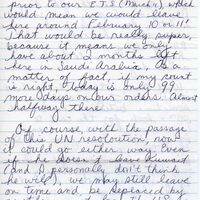 prior to our ETS (March), which
would mean we would leave
here around February 10 or 11!
That would be really super,
because it means we only
have about 3 months left
here in Saudi Arabia. As a
matter of fact, if my count
is right, today is only 99
more days on our orders. Almost
halfway there!
Of course, with the passage
of this UN resolution, now
it could go either way. Even
if he doesn't leave Kuwait
(and I personally don't think
he will), we may still leave
on time and be replaced by